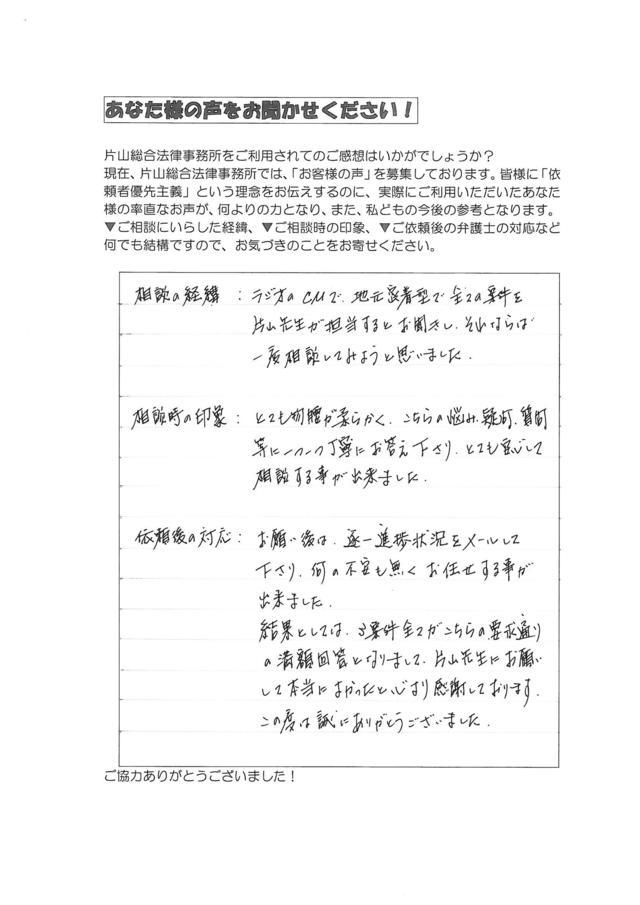 あなた様の声をお聞かせください!
片山総合法律事務所をご利用されてのご感想はいかがでしょうか?
現在、片山総合法律事務所では、「お客様の声」を募集しております。皆様に「依
頼者優先主義」という理念をお伝えするのに、実際にご利用いただいたあなた
様の率直なお声が、何よりの力となり、また、私どもの今後の参考となります。
▼ご相談にいらした経緯、▼ご相談時の印象、▼ご依頼後の弁護士の対応など
何でも結構ですので、お気づきのことをお寄せください。
相談の経緯:ラジオのCMで、地元密着型で全ての案件を
片山先生が担当するとお聞きし、それならば
一度相談してみようと思いました。
相談時の印象:とても物腰が柔らかく、こちらの悩み、疑問、質問
等に一つ一つ丁寧にお答え下さり、とても安心して
相談する事が出来ました。
依頼後の対応:お願い後は、逐一進捗状況をメールして
下さり、何の不安も無くお任せする事が
出来ました。
結果としては、3案件全てがこちらの要求通り
の満額回答となりまして、片山先生にお願い
して本当によかったと心より感謝しております。
この度は誠にありがとうございました。
ご協力ありがとうございました!